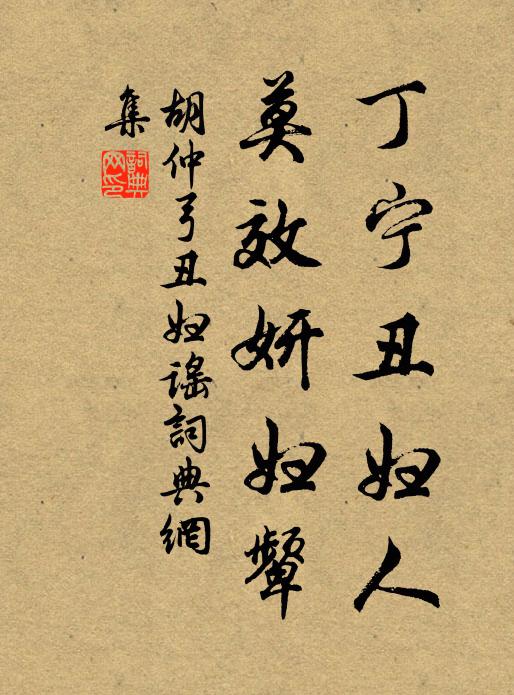 丁宁丑妇人
莫效妍妇颦
胡仲弓丑妇謠詞典網
集
詞典
网印